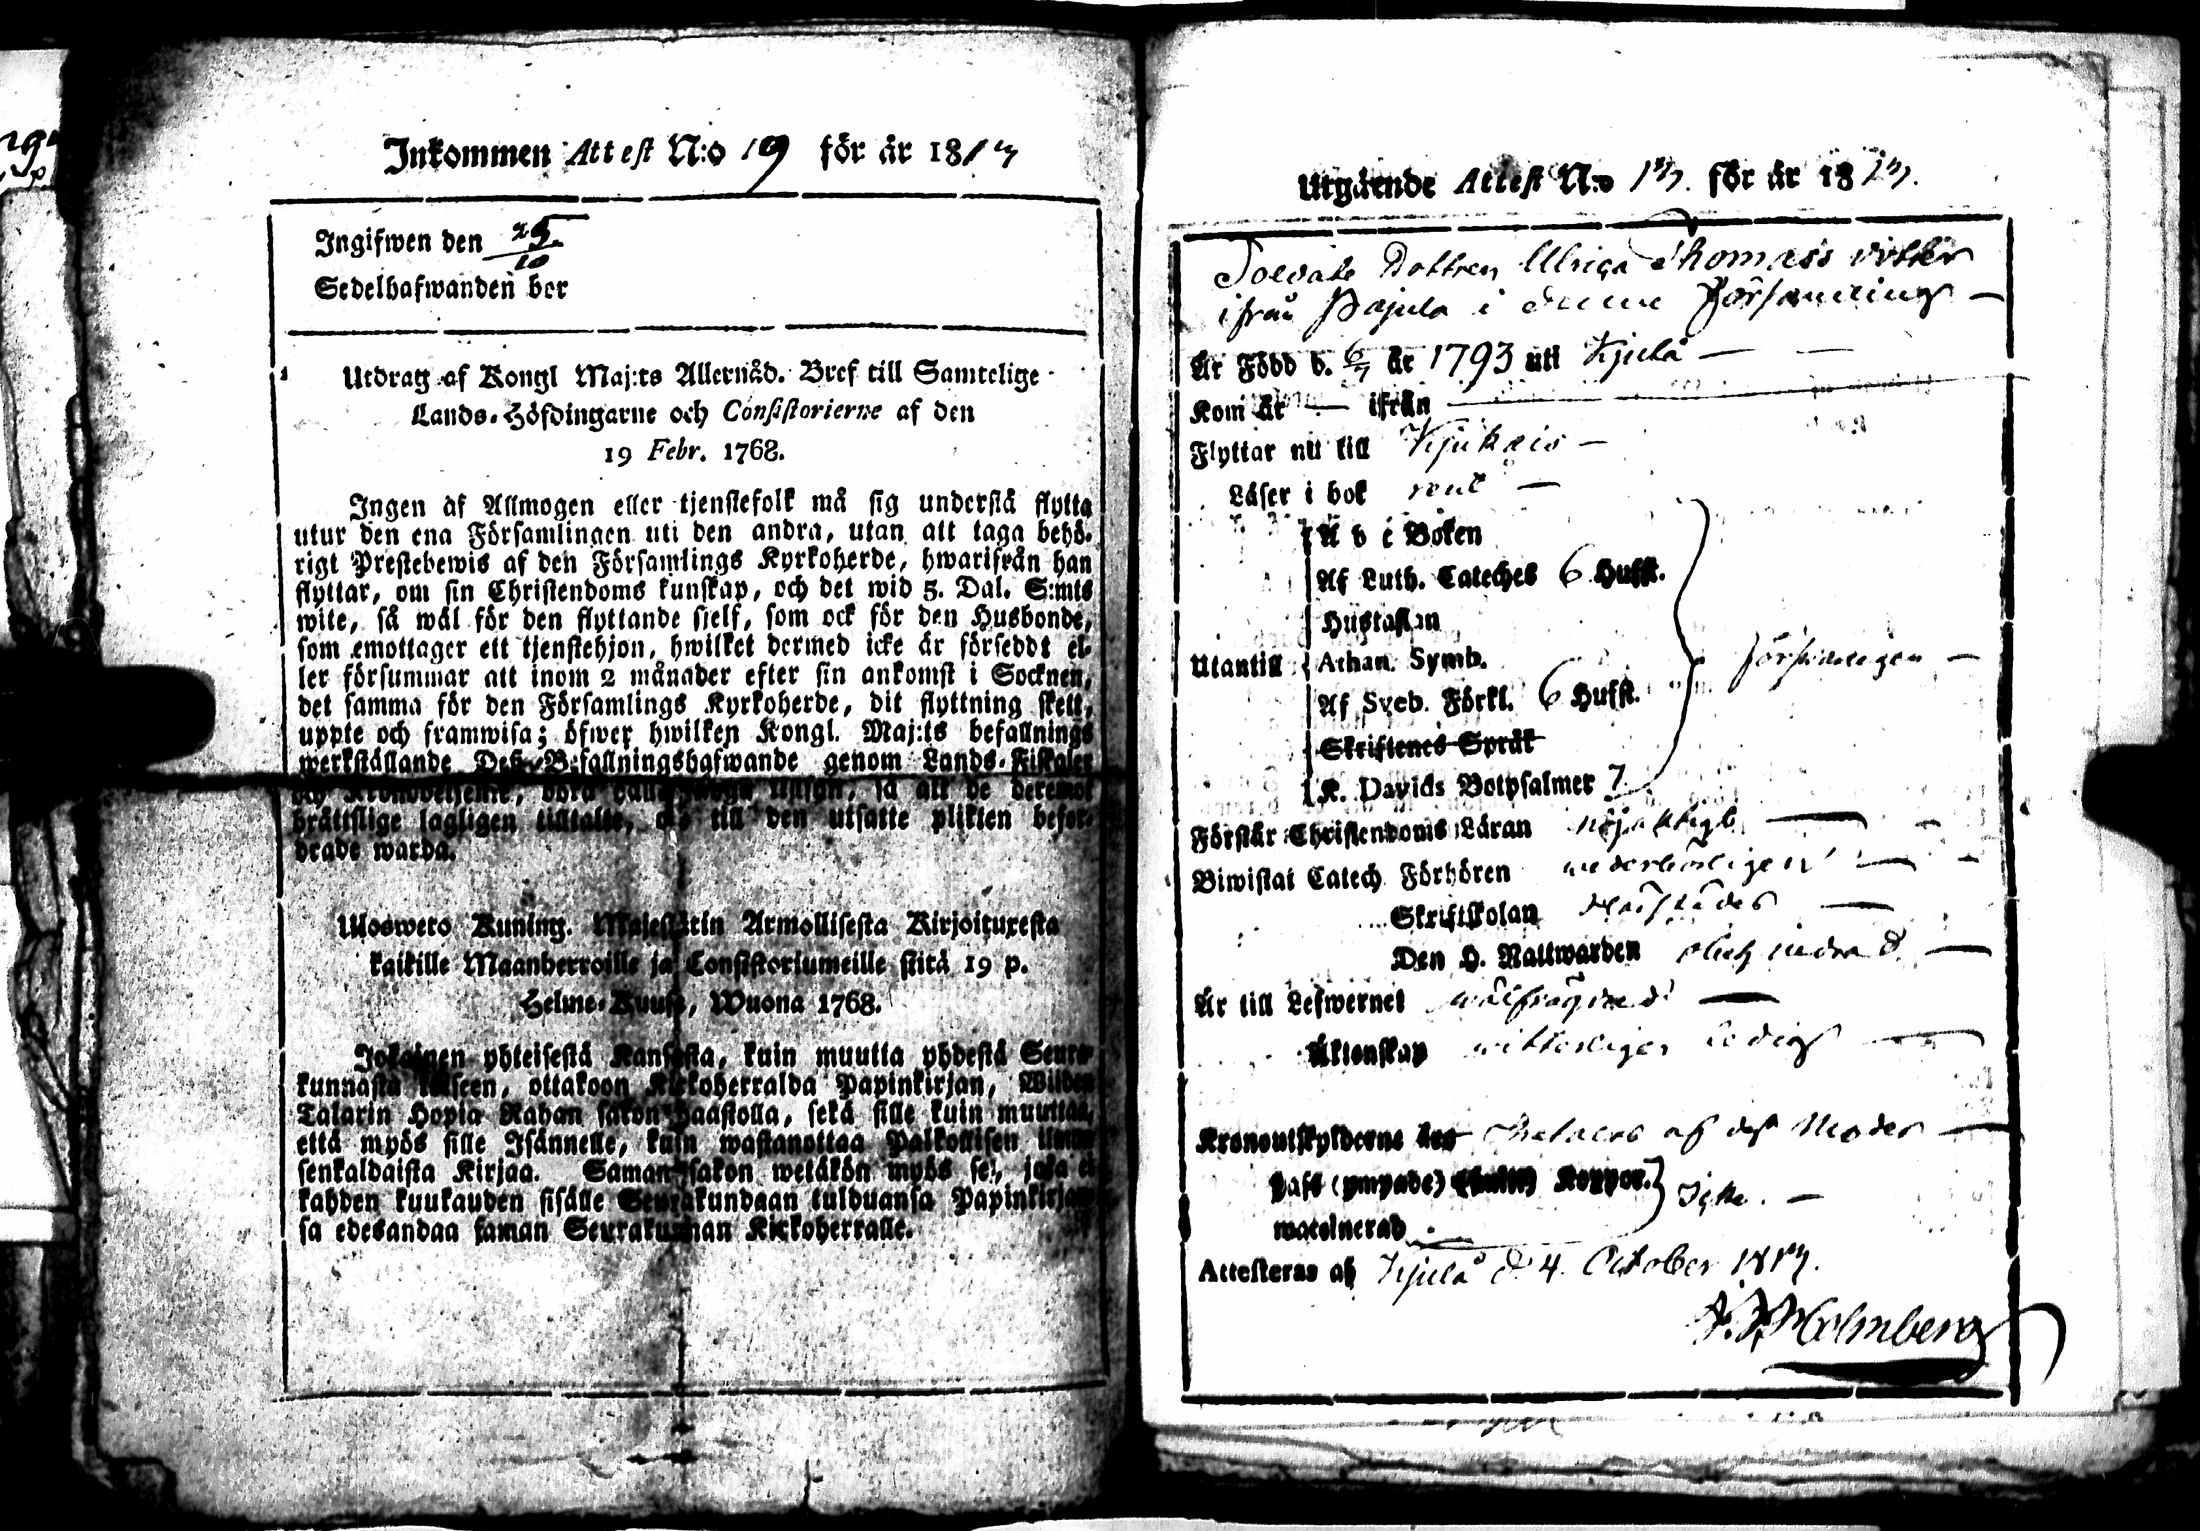 Inkommen Attest N:o 19 för år 1817
Ingifwen den 25/10
Sedelhafwanden bor
Utdrag af Kongl Maj:ts Allernåd. Bref till Samtelige
Lands-Höfdingarne och Consistorierne af den
19 Febr. 1768.
Ingen af Allmogen eller tjenstefolk må sig understå flytta
utur den ena Församlingen uti den andra, utan att taga behö-
rigt Prestebewis af den Församlings Kyrkoherde, hwarifrån han
flyttar, om sin Christendoms kunskap, och det wid 5. Dal. S:mts
wite, så wäl för den flyttande sjelf, som ock för den Husbonde,
som emottager ett tjenstehjon, hwilket dermed icke är förseddt el-
ler försummar att inom 2 månader efter sin ankomst i Socknen,
det samma för den Församlings Kyrkoherde, dit flyttning skett,
uppte och framwisa; öfwer hwilken Kongl. Maj:ts befallnings
werkställande Deß Befallningshafwande genom Lands-Fiskaler
så att de deremot
brättslige lagligen tilltalte, och till den utsatte plikten befor-
drade warda.
Ulosweto Kuning. Majestetin Armollisesta Kirjoituxesta
kaikille Maanherroille ja Consistoriumeille siitä 19 p.
Helme-Kuusa, Wuona 1768.
Jokainen yhteisestä Kansasta, kuin muutta yhdestä Seura-
kunnasta toiseen, ottakoon Kirkoherralda Papinkirjan, Wiiden
Talarin Hopia Rahan sakon haastolla, sekä sille kuin muuttaa,
että myös sille Isännelle, kuin wastanottaa Palkollisen ilman
senkaldaista Kirjaa. Saman sakon wetäkön myös se, joka ei
kahden kuukauden sisälle Seurakundaan tulduansa Papinkirjaan-
sa edesandaa saman Seurakunnan Kirkoherralle.
Utgående Attest N:o 17. för år 1817.
Soldate Dottren Ulrica Thomæs dotter
ifrån Pajula i denne Församling —
Är Född d. 6/7 år 1793 uti Kjulå —
Kom år — ifrån —
Flyttar nu till Kjukais —
Läser i bok rent —
A b c Boken
Af Luth. Cateches 6 Hufst.
Hustaflan
Utantill Athan. Symb. försvarligen —
Af Sveb. Förkl. 6 Hufst.
Skriftenes Språk
K. Davids Botpsalmer 7
Förstår Christendoms Läran nöjaktigt —
Biwistat Catech Förhören wederbörligen —
Skriftskolan
Den H. Nattwarden
Är till Lefwernet wälfrägdad —
Äktenskap witterligen ledig —
Kronoutskylderne af des Moder —
Haft (ympade) Koppor.
waccinerad Icke. —
Attesteras af Kjulå d. 4. October 1817.
Holmberg